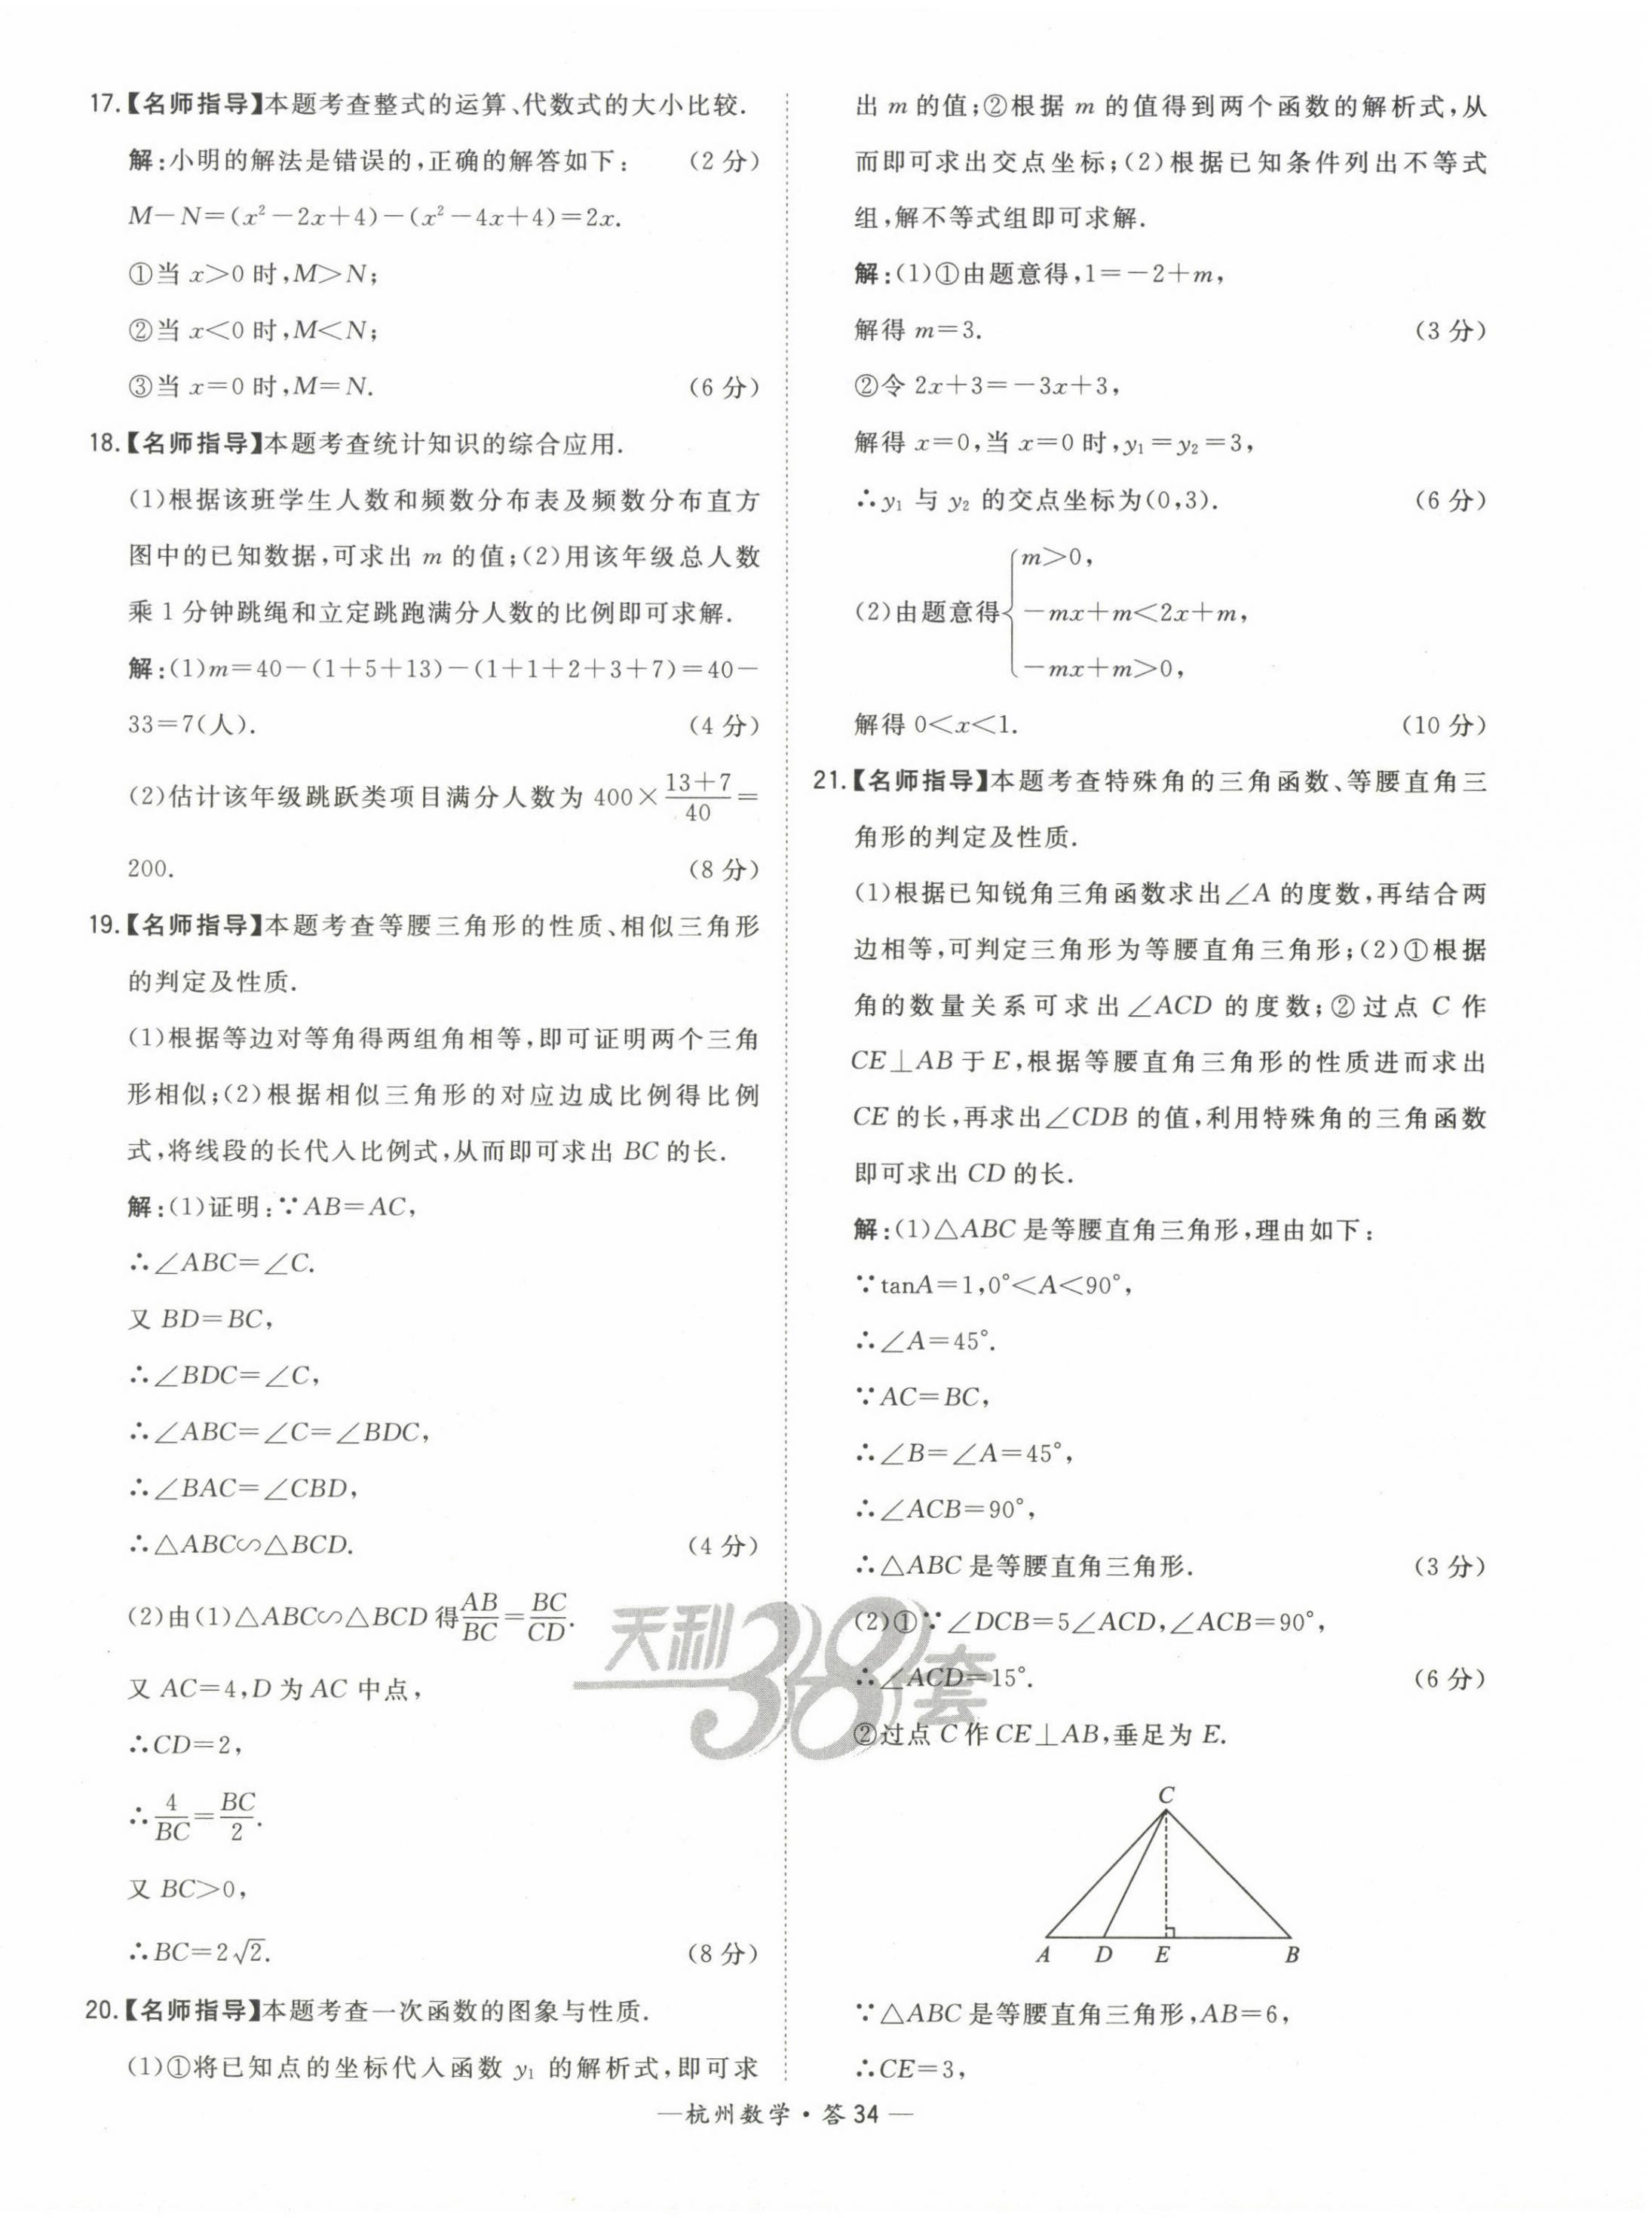 17.【名师指导】本题考查整式的运算、代数式的大小比较.
解:小明的解法是错误的,正确的解答如下: (2分)
M－N=(x²－2x+4)－(x²－4x+4)=2x.
①当 x>0 时,M>N;
②当 x<0 时,M<N;
③当 x=0 时,M=N. (6分)
18.【名师指导】本题考查统计知识的综合应用.
(1)根据该班学生人数和频数分布表及频数分布直方
图中的已知数据,可求出 m 的值;(2)用该年级总人数
乘 1 分钟跳绳和立定跳跑满分人数的比例即可求解.
解:(1)m=40－(1+5+13)－(1+1+2+3+7)=40－
33=7(人). (4分)
(2)估计该年级跳跃类项目满分人数为 400×(13+7)/40=
200. (8分)
19.【名师指导】本题考查等腰三角形的性质、相似三角形
的判定及性质.
(1)根据等边对等角得两组角相等,即可证明两个三角
形相似;(2)根据相似三角形的对应边成比例得比例
式,将线段的长代入比例式,从而即可求出 BC 的长.
解:(1)证明:∵AB=AC,
∴∠ABC=∠C.
又 BD=BC,
∴∠BDC=∠C,
∴∠ABC=∠C=∠BDC,
∴∠BAC=∠CBD,
∴△ABC∽△BCD. (4分)
(2)由(1)△ABC∽△BCD 得AB/BC=BC/CD.
又 AC=4,D 为 AC 中点,
∴CD=2,
∴4/BC=BC/2.
又 BC>0,
∴BC=2√2. (8分)
20.【名师指导】本题考查一次函数的图象与性质.
(1)①将已知点的坐标代入函数 y₁ 的解析式,即可求
出 m 的值;②根据 m 的值得到两个函数的解析式,从
而即可求出交点坐标;(2)根据已知条件列出不等式
组,解不等式组即可求解.
解:(1)①由题意得,1=－2+m,
解得 m=3. (3分)
②令 2x+3=－3x+3,
解得 x=0,当 x=0 时,y₁=y₂=3,
∴y₁ 与 y₂ 的交点坐标为(0,3). (6分)
m>0,
(2)由题意得{－mx+m<2x+m,
－mx+m>0,
解得 0<x<1. (10分)
21.【名师指导】本题考查特殊角的三角函数、等腰直角三
角形的判定及性质.
(1)根据已知锐角三角函数求出∠A 的度数,再结合两
边相等,可判定三角形为等腰直角三角形;(2)①根据
角的数量关系可求出∠ACD 的度数;②过点 C 作
CE⊥AB 于 E,根据等腰直角三角形的性质进而求出
CE 的长,再求出∠CDB 的值,利用特殊角的三角函数
即可求出 CD 的长.
解:(1)△ABC 是等腰直角三角形,理由如下:
∵tanA=1,0°<A<90°,
∴∠A=45°.
∵AC=BC,
∴∠B=∠A=45°,
∴∠ACB=90°,
∴△ABC 是等腰直角三角形. (3分)
(2)①∵∠DCB=5∠ACD,∠ACB=90°,
∴∠ACD=15°. (6分)
②过点 C 作 CE⊥AB,垂足为 E.
C
A D E B
∵△ABC 是等腰直角三角形,AB=6,
∴CE=3,
天利38套
—杭州数学·答34—